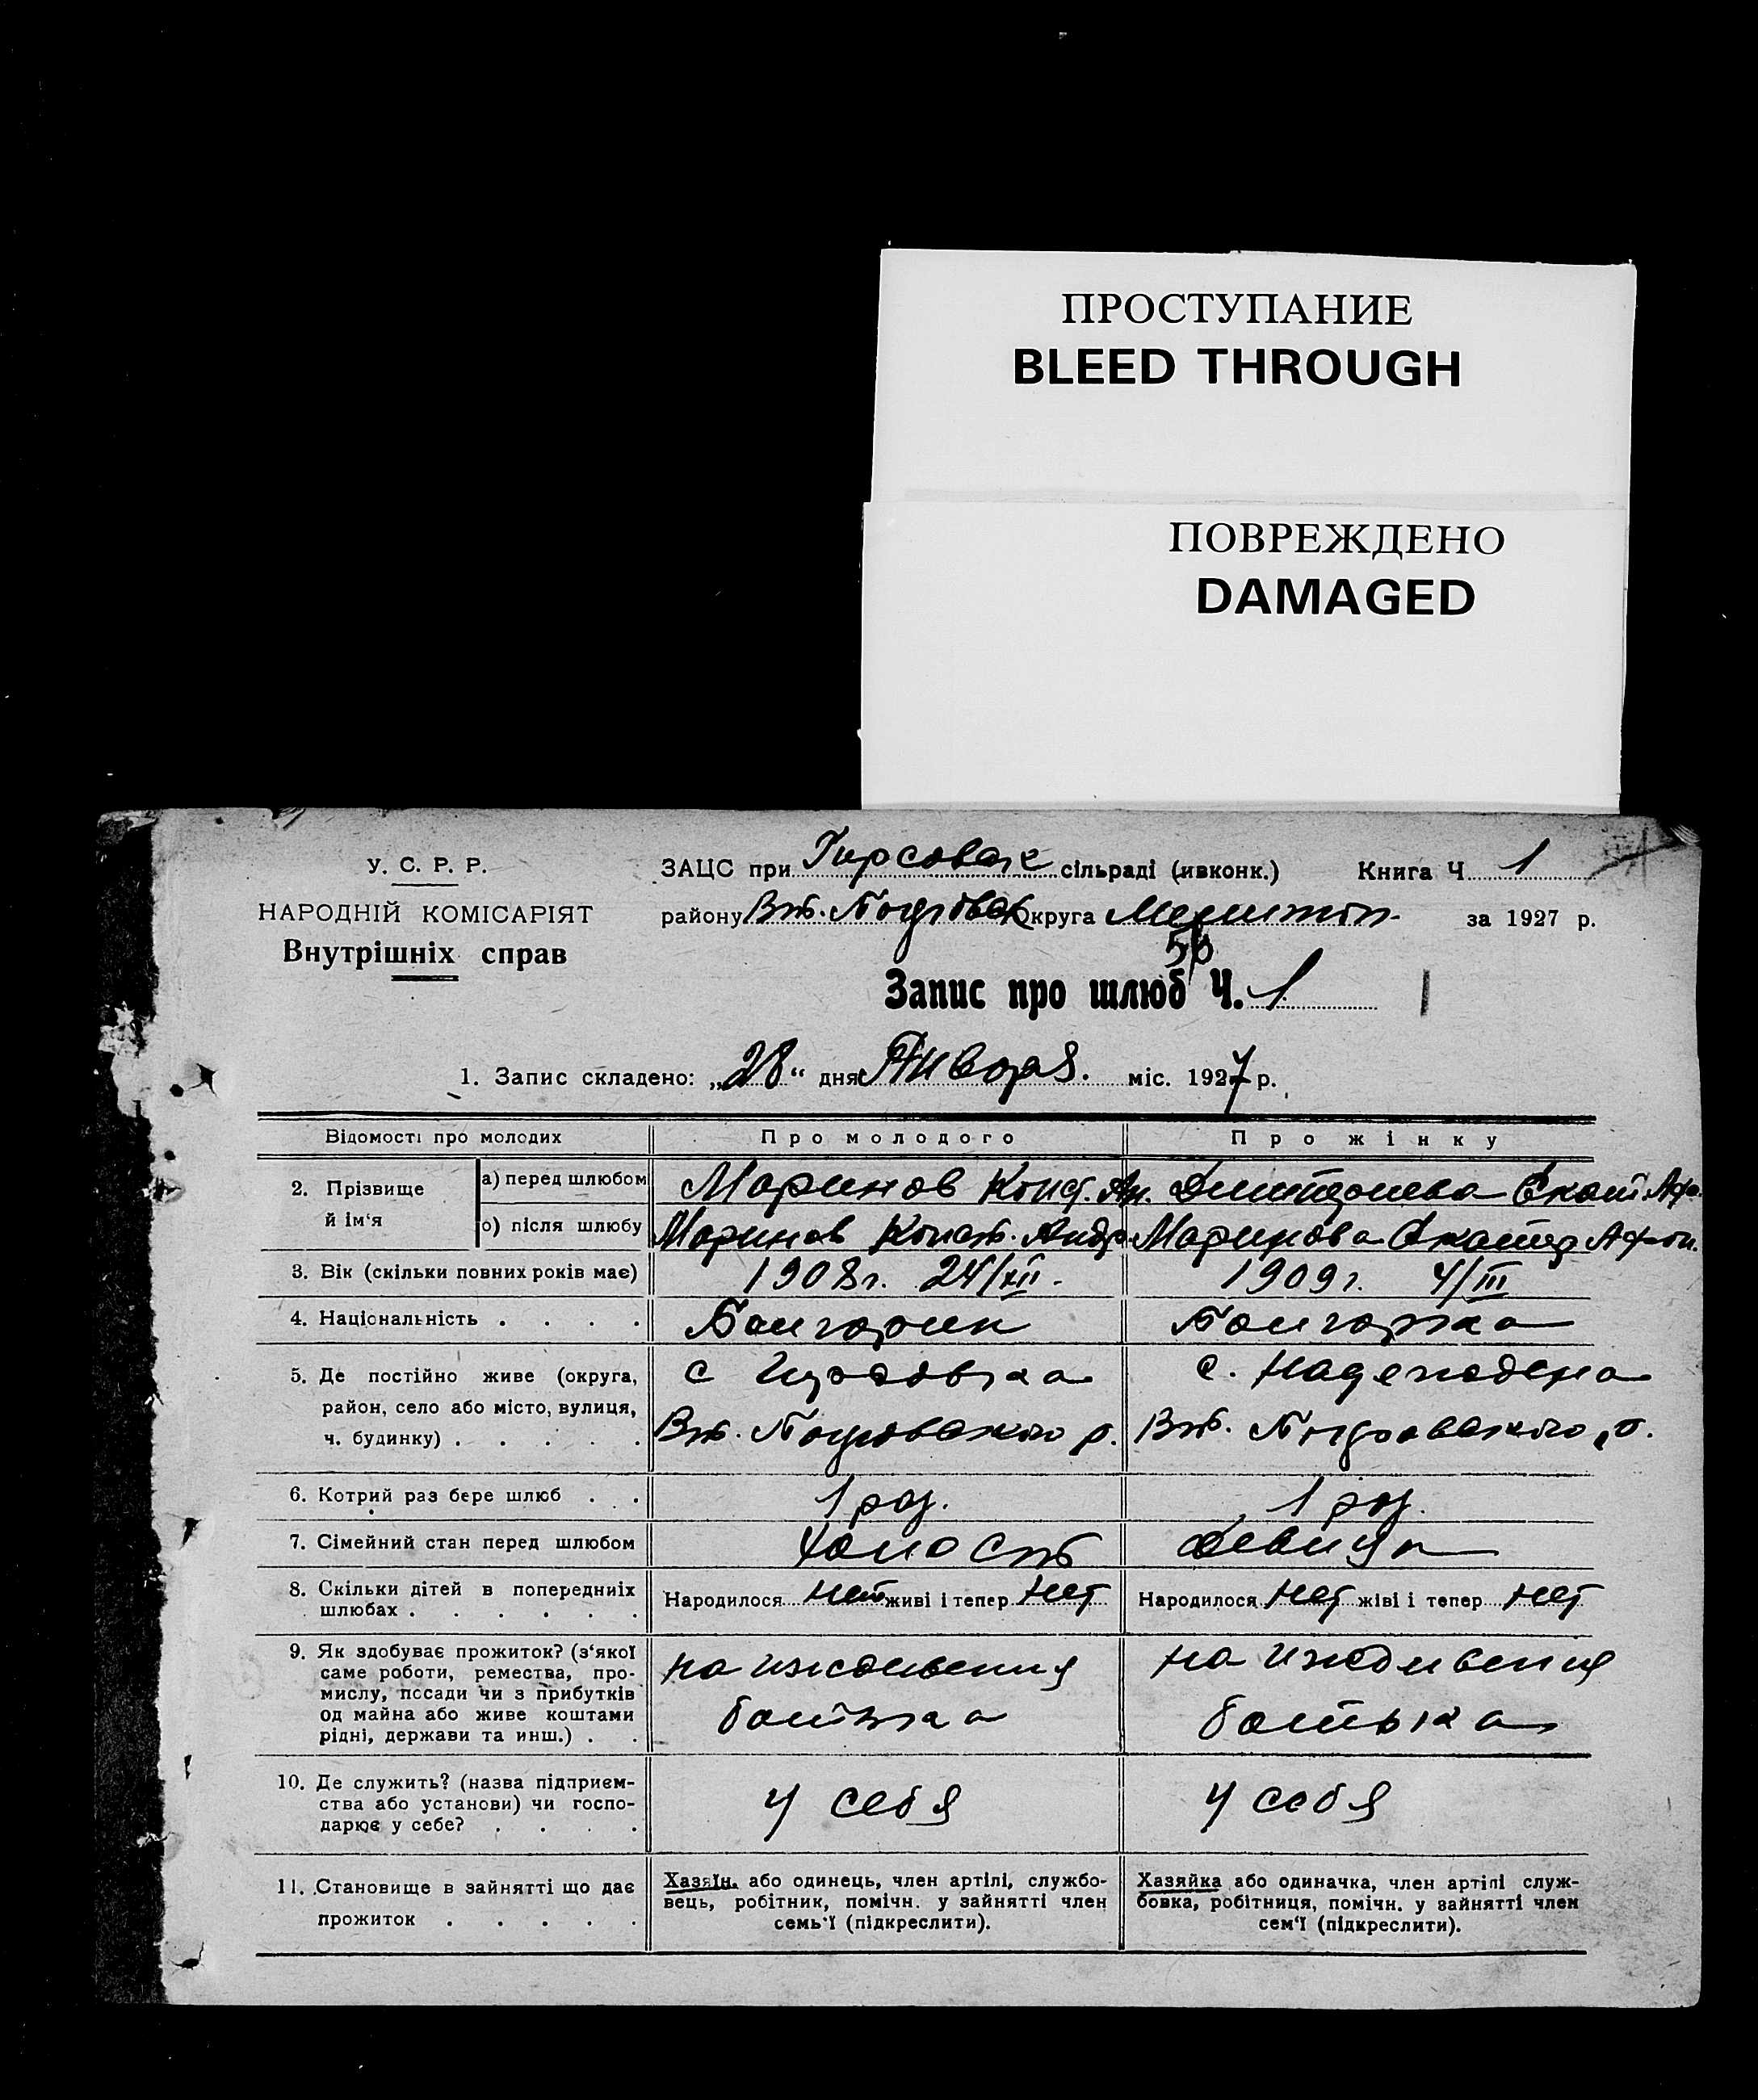 ПРОСТУПАНИЕ
BLEED THROUGH
ПОВРЕЖДЕНО
DAMAGED
У. С. Р. Р.
НАРОДНІЙ КОМІСАРІЯТ
Внутрішніх справ
ЗАЦС при сільраді (ивконк.) Книга Ч. 1
району Округа за 1927 р.
Запис про шлюб Ч. 1
1. Запис складено: „28“ дня Января. міс. 1927 р.
Відомості про молодих Про молодого Про жінку
2. Прізвище й ім'я
а) перед шлюбом Маринов Ан.
о) після шлюбу Маринов Конст. Андр. Маринова Афон.
3. Вік (скільки повних років має) 1908 г. 24/XII. 1909 г. 4/III
4. Національність . . . . Болгарин Болгарка
5. Де постійно живе (округа, с с.
район, село або місто, вулиця,
ч. будинку) . . . . . р. р.
6. Котрий раз бере шлюб . . 1 раз. 1 раз.
7. Сімейний стан перед шлюбом холость девица
8. Скільки дітей в попередниіх Народилося нет живі і тепер нет Народилося нет жіві і тепер нет
шлюбах . . . . . .
9. Як здобуває прожиток? (з'якої на иждивения на иждивения
саме роботи, ремества, про-
мислу, посади чи з прибутків батька батька
од майна або живе коштами
рідні, держави та инш.) . .
10. Де служить? (назва підприєм- у себя у себя
ства або установи) чи госпо-
дарює у себе? . . . .
11. Становище в зайнятті що дає
прожиток . . . . .
Хазяїн, або одинець, член артілі, службо-
вець, робітник, помічн. у зайнятті член
семь'ї (підкреслити).
Хазяйка або одиначка, член артілі служ-
бовка, робітниця, помічн. у зайнятті член
сем'ї (підкреслити).